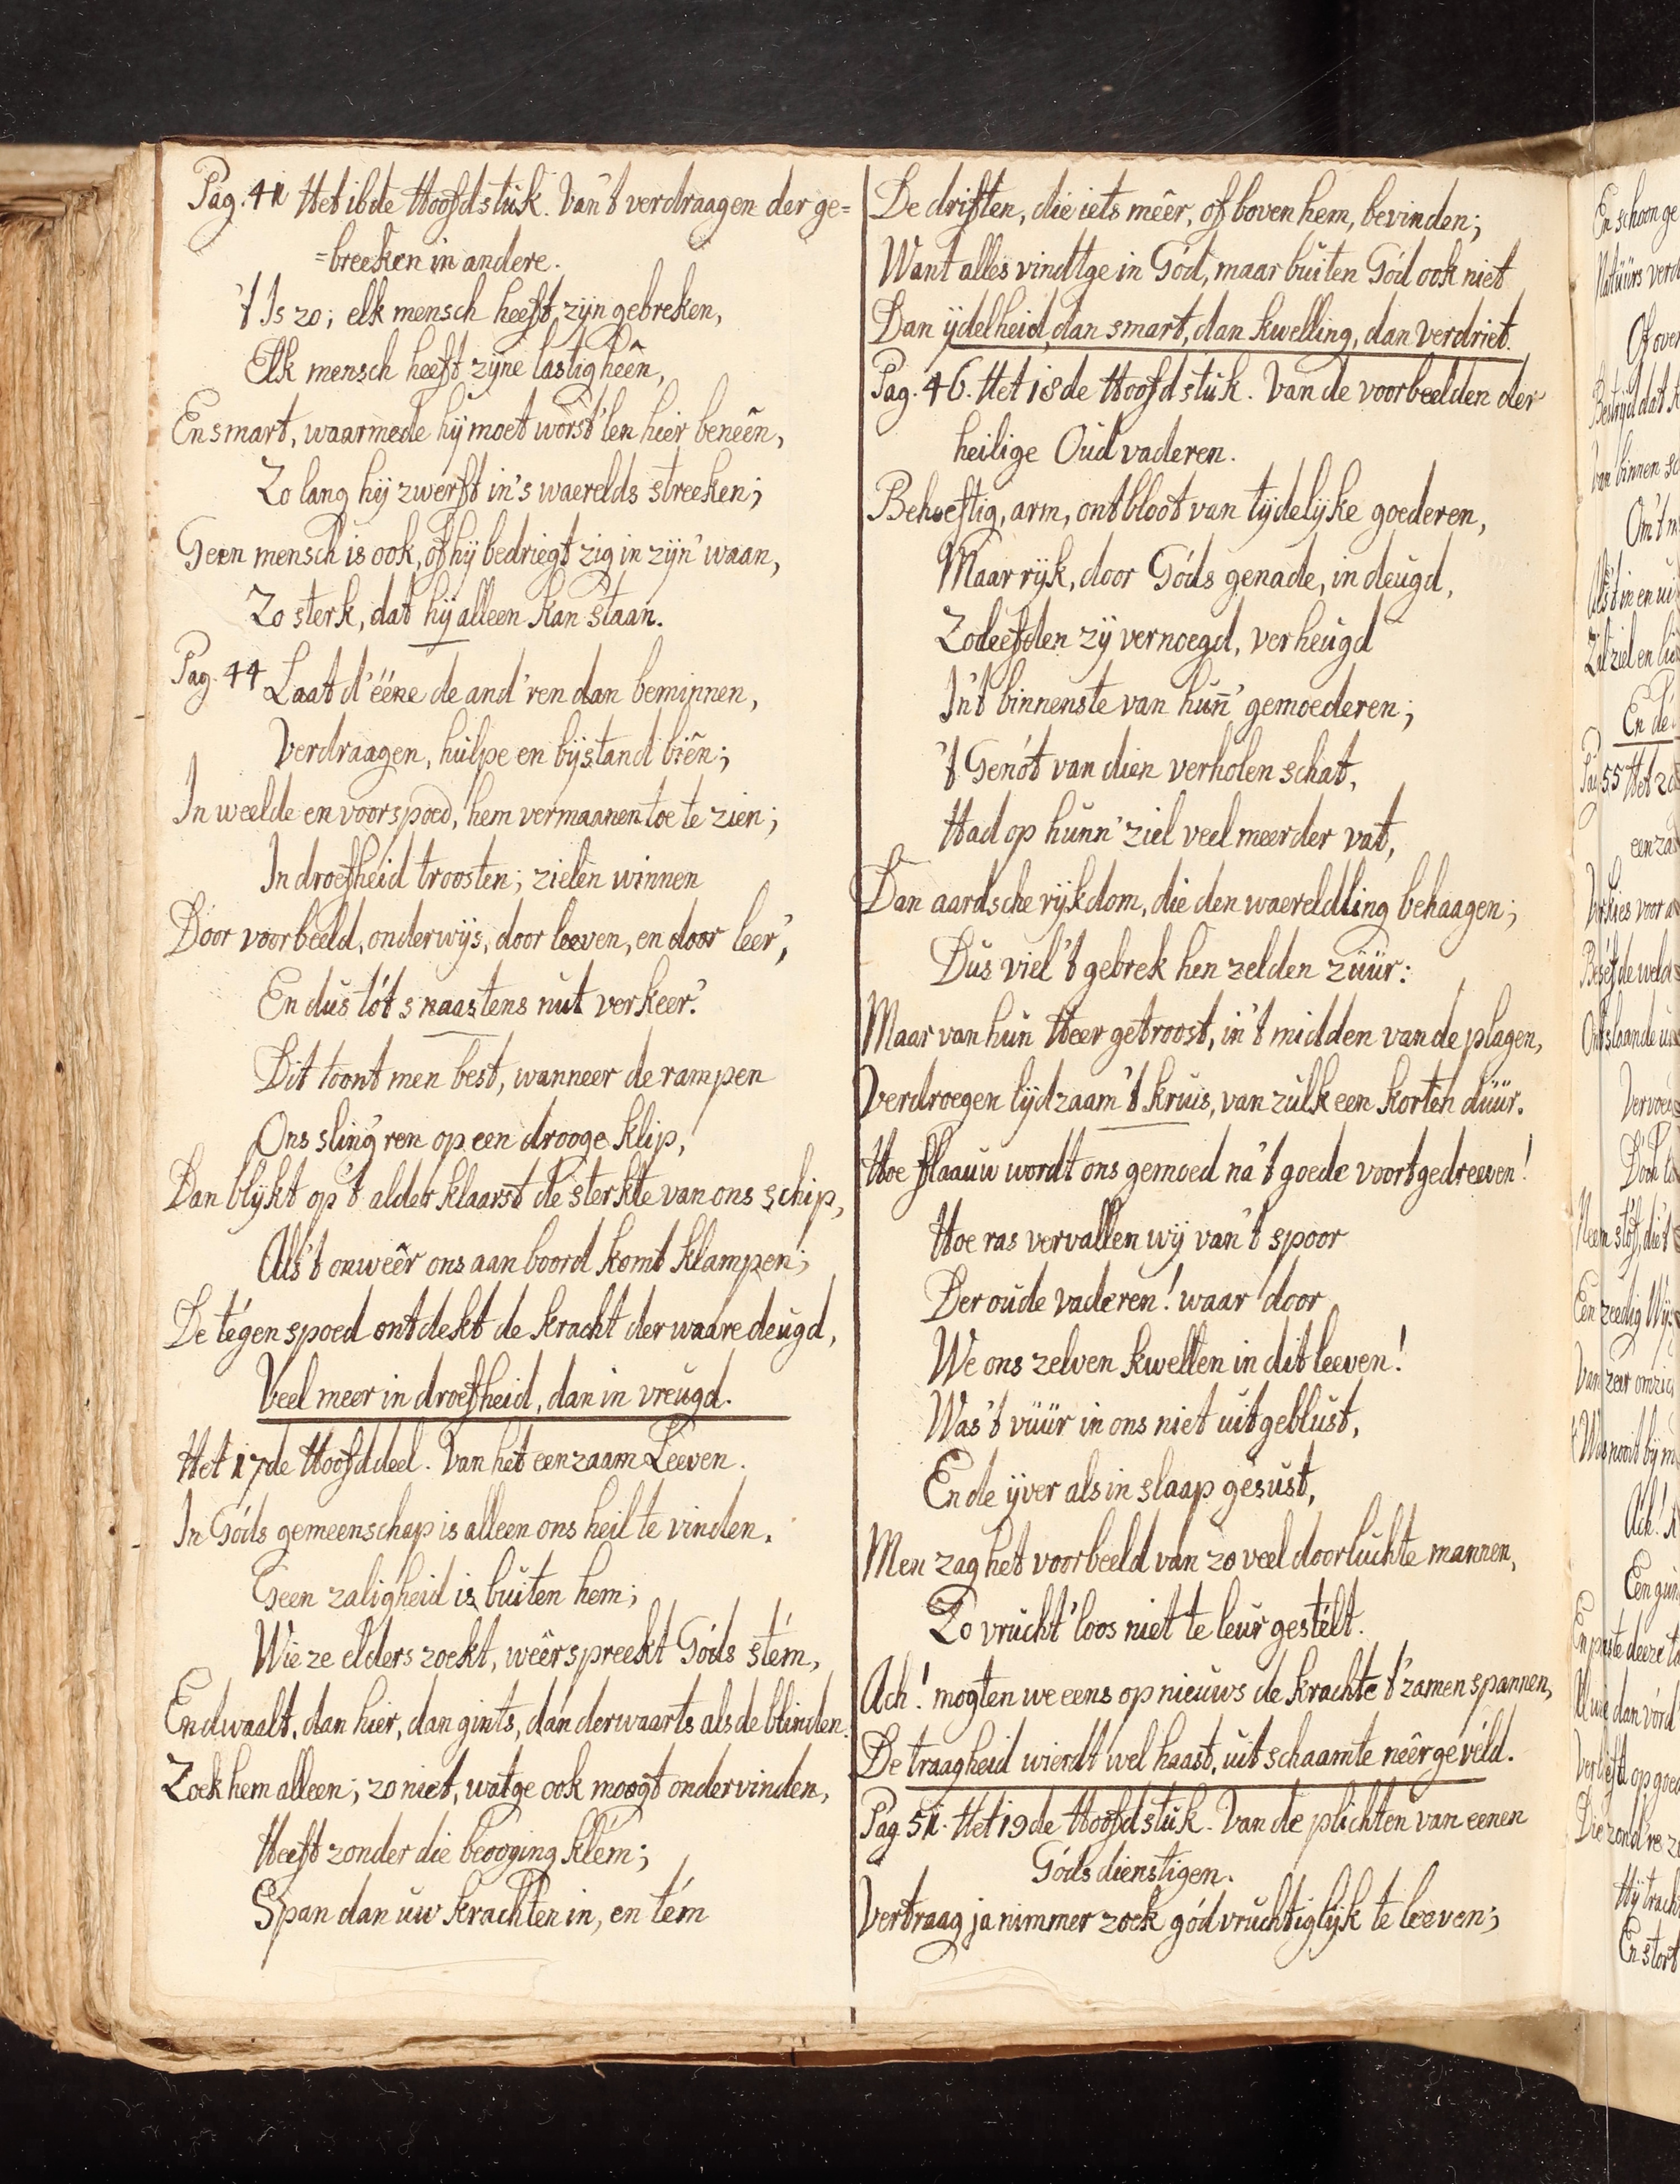 Pag. 41 Het 16de Hoofdstuk. Van't verdraagen der ge=
=breeken in andere.
't Is zo; elk mensch heeft zijn gebreken,
Elk mensch heeft zijne lastigheên,
En smart, waarmede hij moet worst'len hier beneên,
Zo lang hij zwerft in's waerelds streeken;
Geen mensch is ook, of hij bedriegt zig in zijn' waan,
Zo sterk, dat hij alleen kan staan.
Pag. 44 Laat d'ééne de and'ren dan beminnen,
Verdraagen, hulpe en bijstand biên;
In weelde en voorspoed, hem vermaanen toe te zien;
In droefheid troosten; zielen winnen
Door voorbeeld, onderwijs, door leeven, en door leer',
En dus tót s naastens nut verkeer'.
Dit toont men best, wanneer de rampen
Ons sling'ren op een drooge klip,
Dan blijkt op 't alder klaarst de sterkte van ons schip,
Als't onweêr ons aan boord komt klampen;
De tégenspoed ontdekt de kracht der waare deugd,
Veel meer in droefheid, dan in vreugd.
Het 17de Hoofddeel. Van het eenzaam Leeven.
In Góds gemeenschap is alleen ons heil te vinden.
Geen zaligheid is buiten hem;
Wie ze elders zoekt, weêrspreekt Góds stém,
En dwaalt, dan hier, dan gints, dan derwaarts als de blinden.
Zoek hem alleen; zo niet, watge ook moogt ondervinden,
Heeft zonder die beooging klém;
Span dan uw krachten in, en tém
De driften, die iets mêer, of boven hem, bevinden;
Want alles vindtge in Gód, maar buiten Gód ook niet
Dan ijdelheid, dan smart, dan kwelling, dan verdriet.
Pag. 46. Het 18de Hoofdstuk. Van de voorbeelden der
heilige Oudvaderen.
Behoeftig, arm, ontbloot van tijdelijke goederen,
Maar rijk, door Góds genade, in deugd,
Zo leefden zij vernoegd, verheugd
In't binnenste van hun̄' gemoederen;
't Genót van dien verholen schat,
Had op hunn' ziel veel meerder vat,
Dan aardsche rijkdom, die den waereldling behaagen;
Dus viel 't gebrek hen zelden züür:
Maar van hun Heer getroost, in't midden van de plagen,
Verdroegen lijdzaam 't kruis, van zulk een korten düür.
Hoe flaauw wordt ons gemoed na't goede voortgedreeven!
Hoe ras vervallen wij van't spoor
Der oude vaderen! waar door
We ons zelven kwellen in dit leeven!
Was't vüür in ons niet uitgeblust,
En de ijver als in slaap gesust,
Men zag het voorbeeld van zo veel doorluchte mannen,
Zo vrucht'loos niet te leur gestélt.
Ach! mogten we eens op nieuws de krachte t'zamen spannen,
De traagheid wierdt wel haast, uit schaamte neêrgevéld.
Pag. 51. Het 19de Hoofdstuk. Van de plichten van eenen
Góds dienstigen.
Vertraag ja nimmer zoek gódvruchtiglijk te leeven;
En schoon ge
Natüürs verd
Of over
van binnen
Om't
En de
Pag 55 Het 20
een za